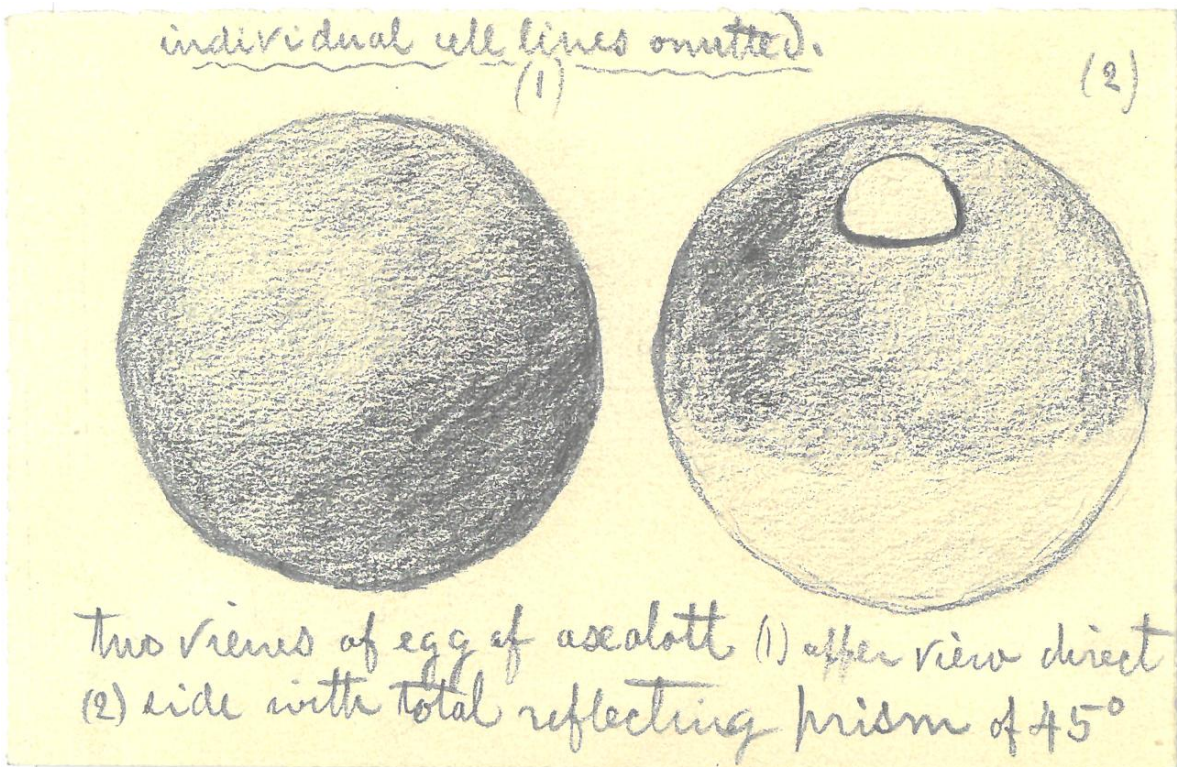 individual cell lines omitted.
(1) (2)
two views of egg of axolott (1) upper view direct
(2) side with total reflecting prism of 45°